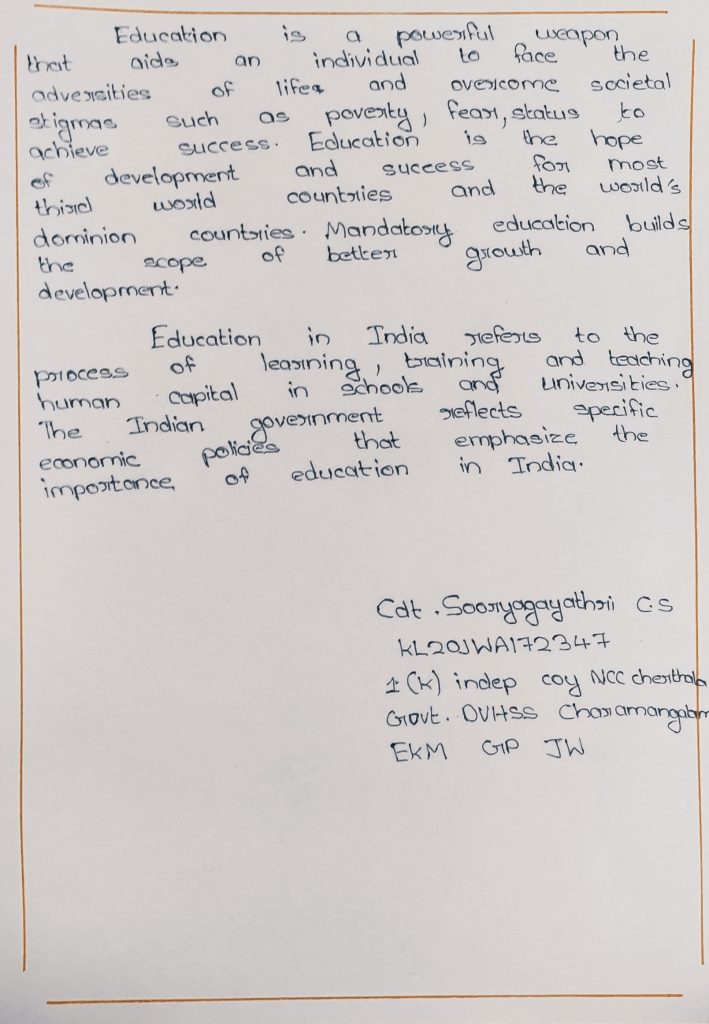 Education is a powerful weapon
that aids an individual to face the
adversities of life and overcome societal
stigmas such as poverty, fear, status to
achieve success. Education is the hope
of development and success for most
third world countries and the world's
dominion countries. Mandatory education builds
the scope of better growth and
development.
Education in India refers to the
process of learning, training and teaching
human capital in schools and universities.
The Indian government reflects specific
economic policies that emphasize the
importance of education in India.
Cdt. Sooryagayathri C.S
KL20JWA172347
1 (K) indep coy NCC cherthala
Govt. DVHSS Charamangalam
EKM GP JW